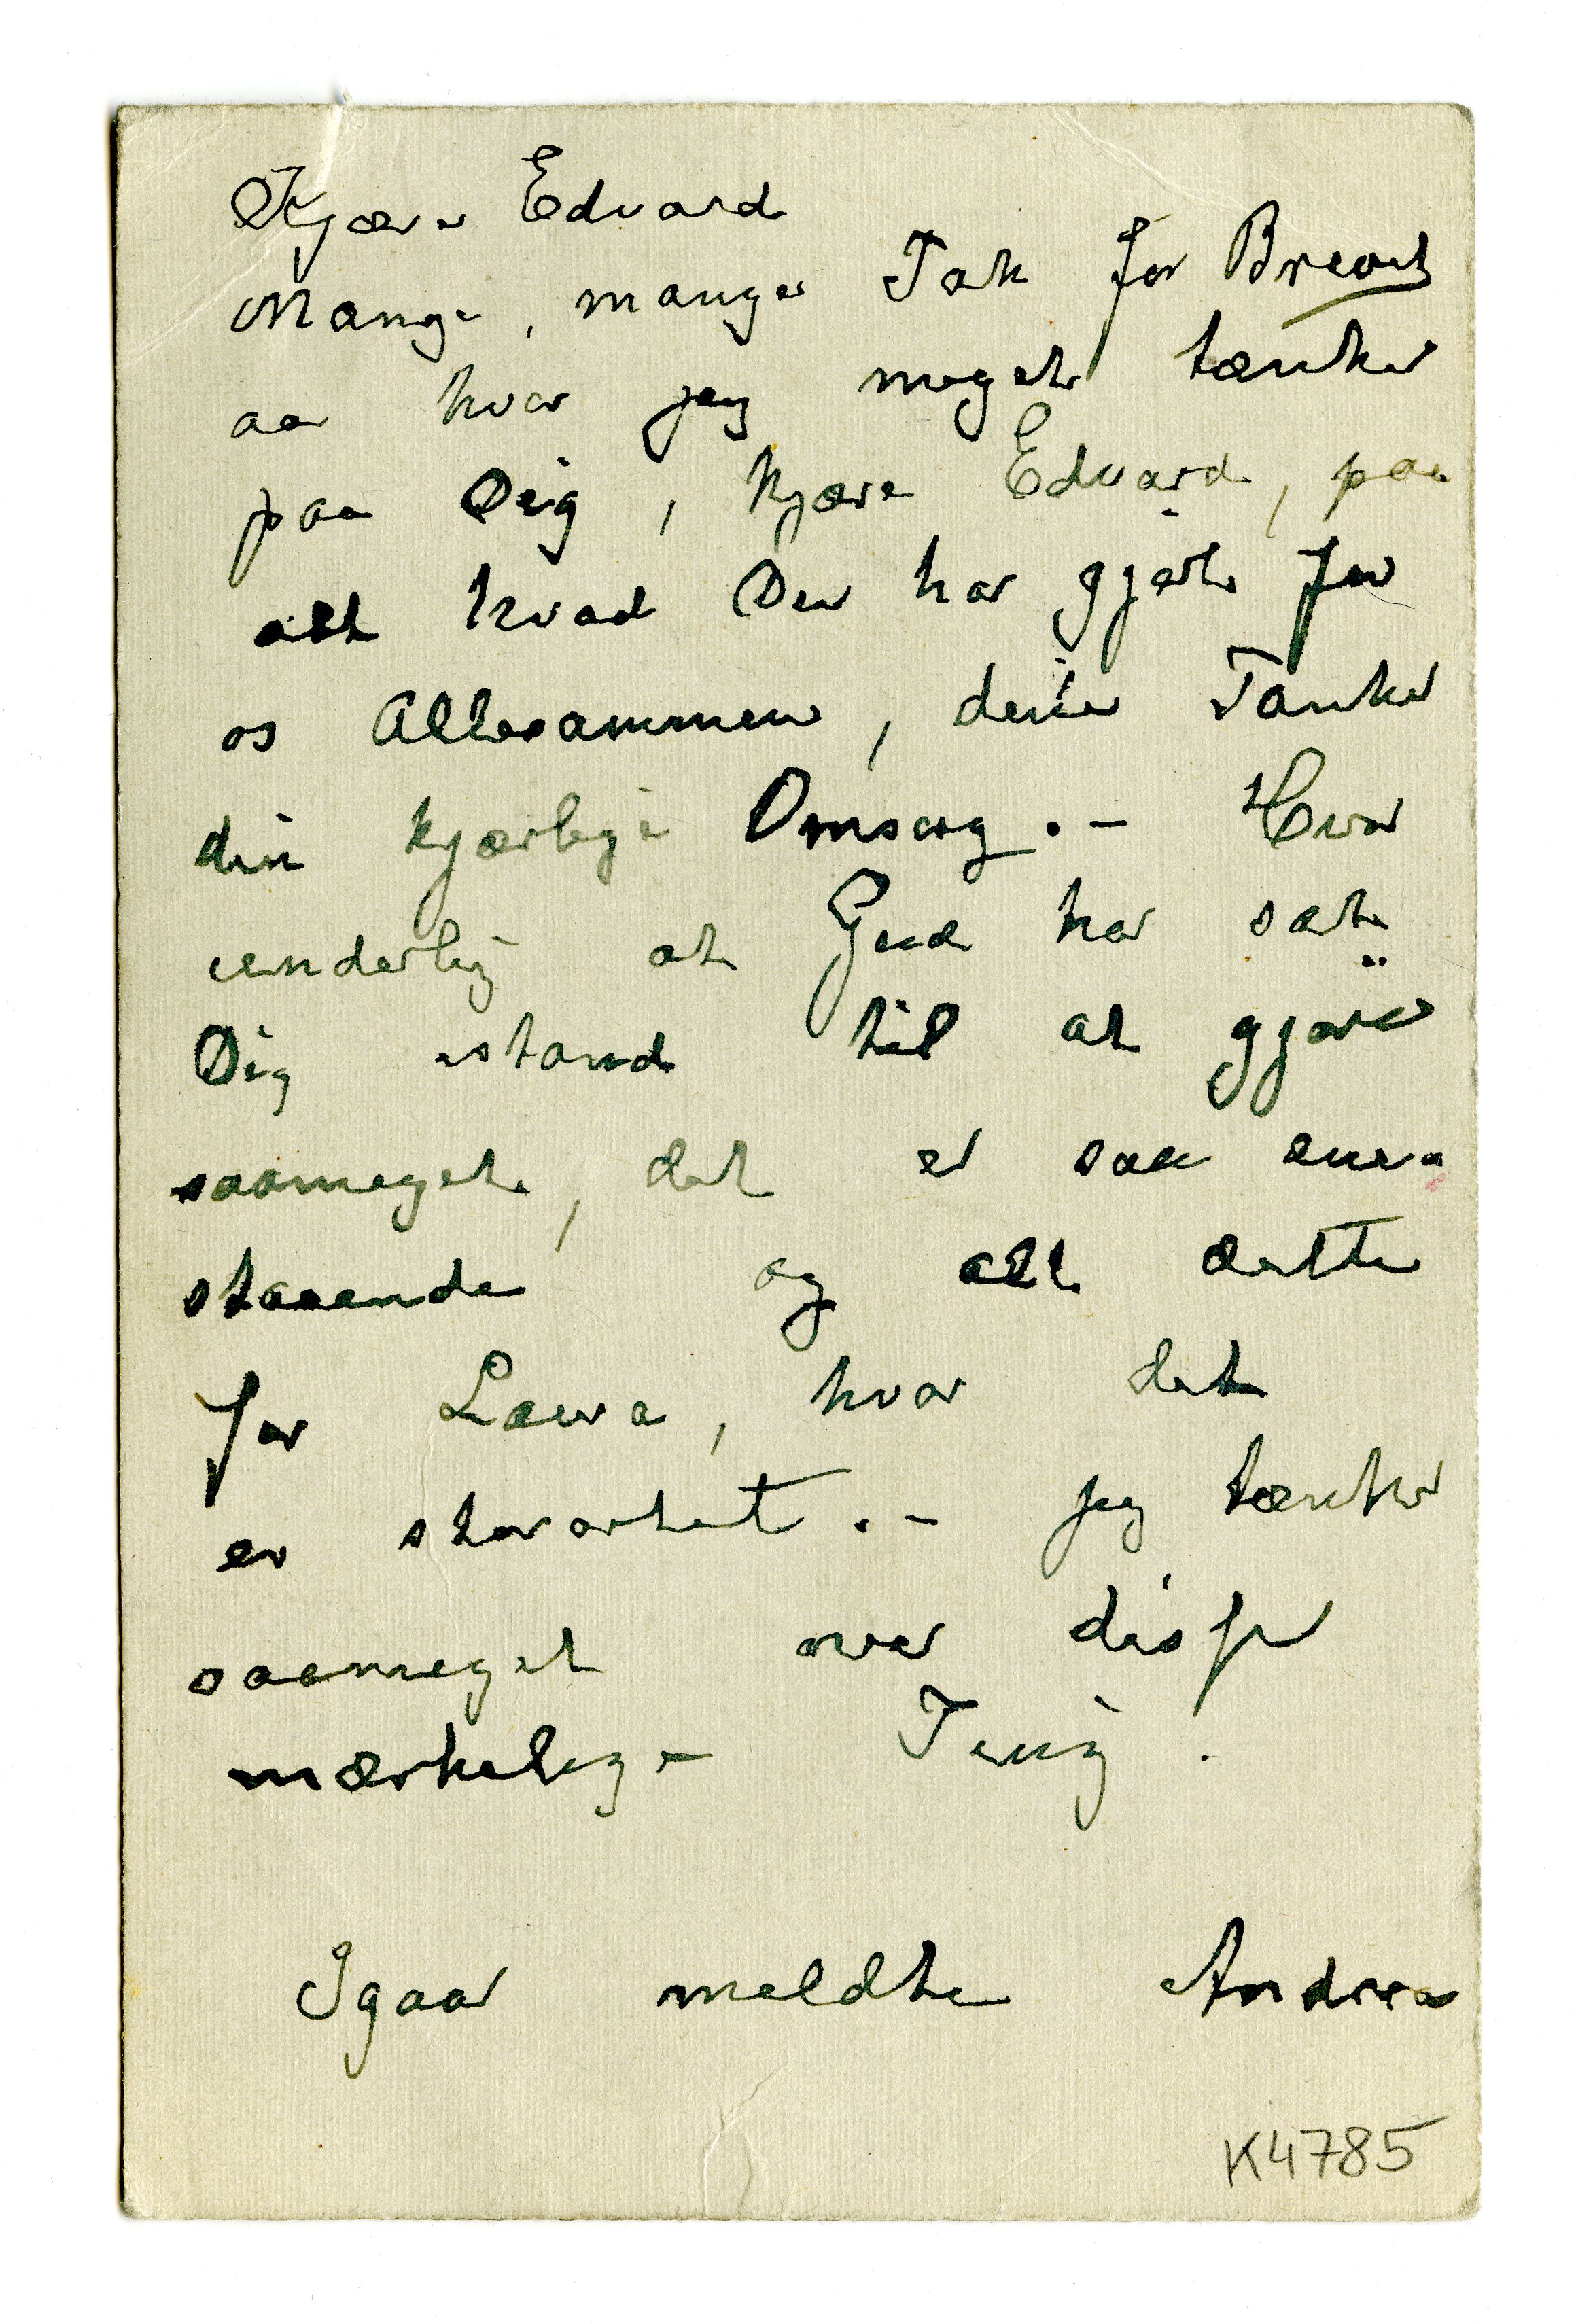 Kjære Edvard
Mange, mange Tak for Brevet
aa hvor jeg meget tænker
paa Dig, kjære Edvard, paa
alt hvad Du har gjørt for
os Allesammen, dine Tanker
din kjærlige Omsorg.- Hvor
underlig at Gud har sat
Dig istand til at gjøre
saameget, det er saa ene-
staaende og alt dette
for Laura, hvor det
er storartet.- Jeg tænker
saameget over disse
mærkelige Ting.
Igaar meldte Andrea
K4785